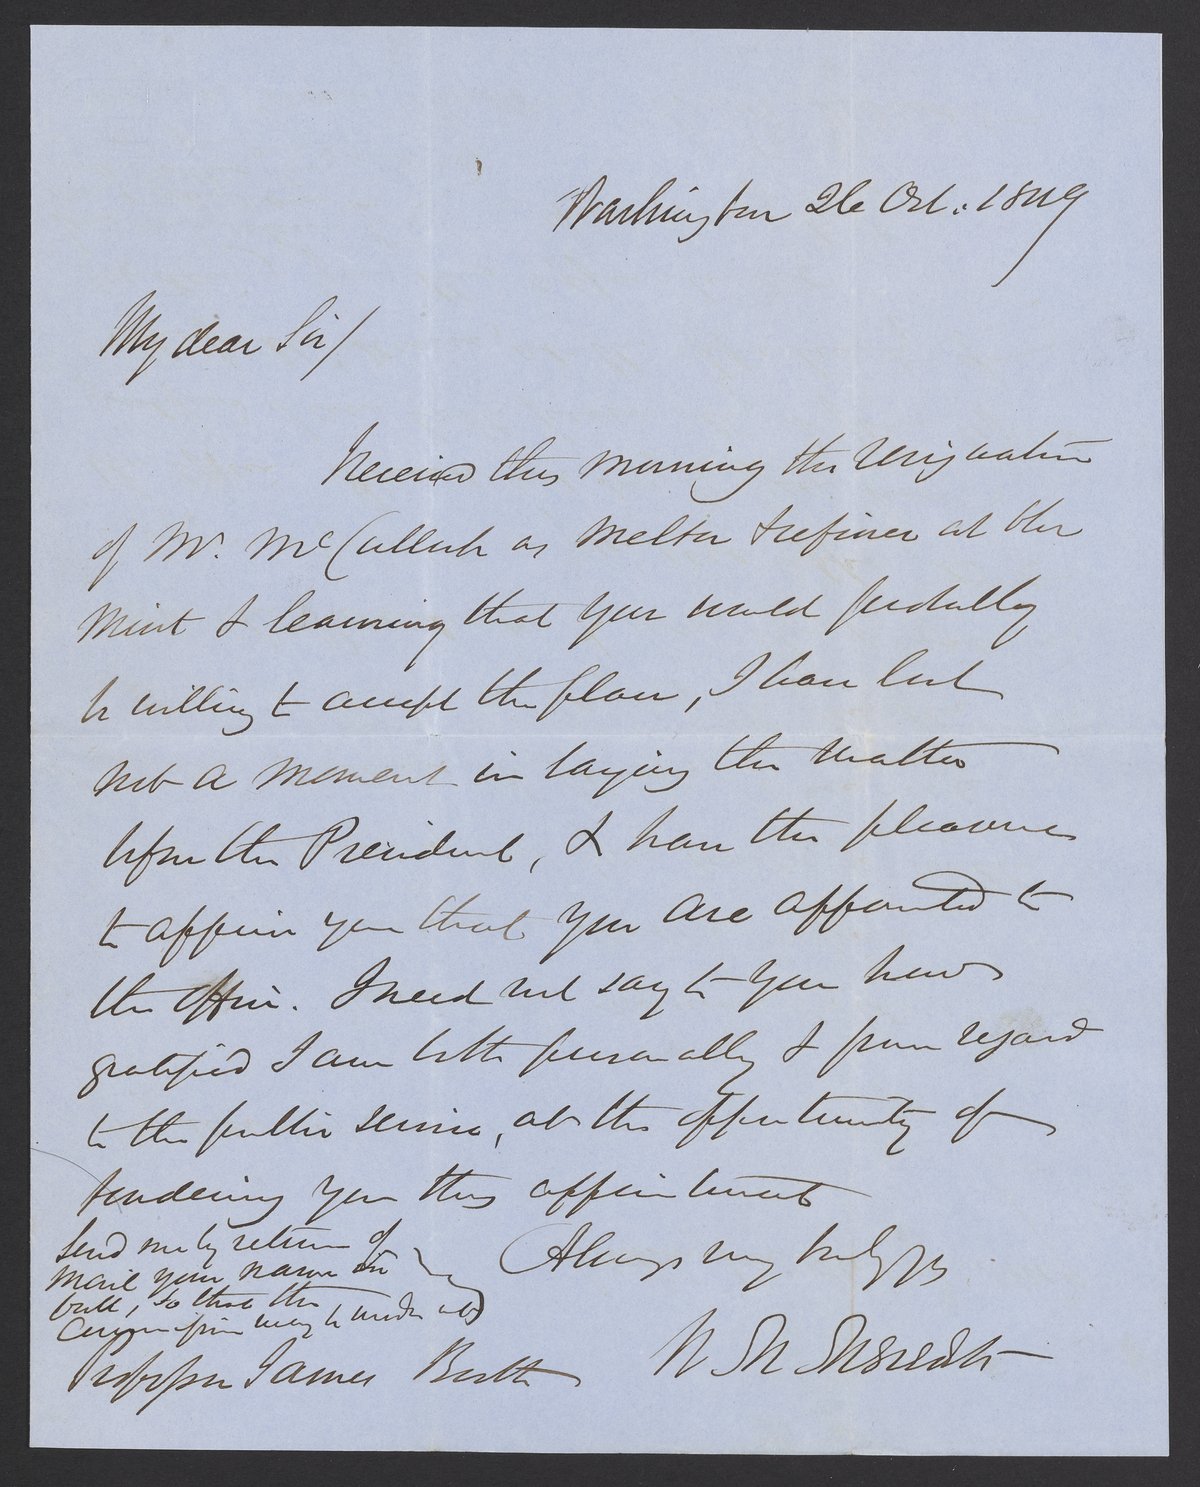 Washington 26 Oct. 1849
My dear Sir/
I received this morning the resignation
of Mr. McCulloh as Melter & refiner at the
Mint & learning that you would probably
be willing to accept the place, I have lost
not a moment in laying the matter
before the President, & have the pleasure
to apprise you that you are appointed to
the office. I need not say to you how
gratified I am both personally & from regard
to the public service, at the opportunity of
tendering you this appointment
Always very truly yrs
Send me by return of
mail your name in
full, so that the
Commission may be made out
W M Meredith
Professor James Booth